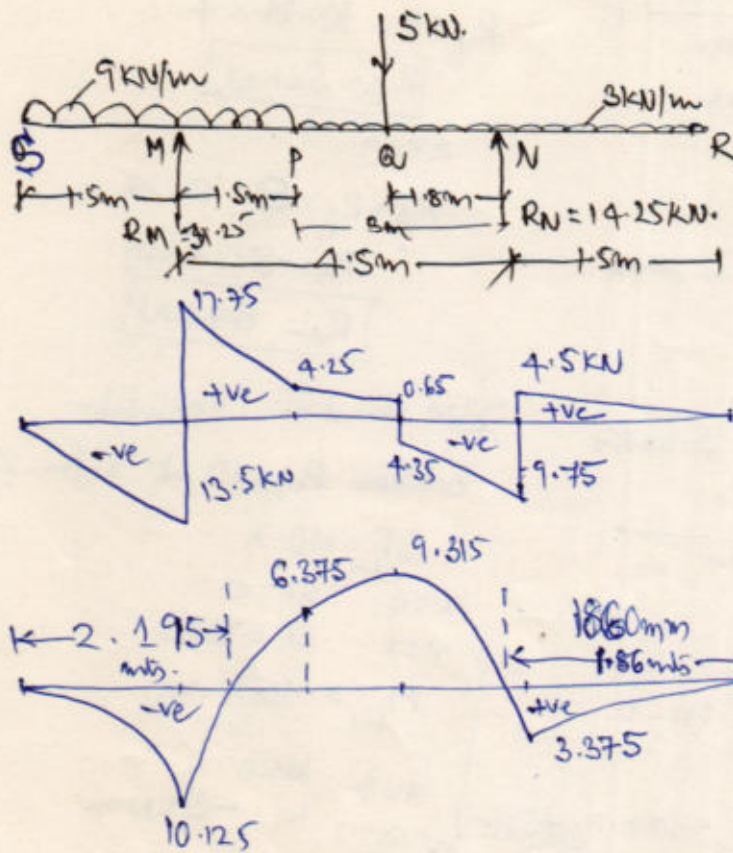 5 KN.
9 KN/m
3KN/m
S M P Q N R
1.5m 1.5m 1.8m
RM = 31.25 3m RN = 14.25KN.
4.5m 1.5m
17.75
4.25 0.65 4.5 KN
+ve +ve
-ve -ve
13.5 KN 4.35 9.75
9.315
6.375
2.195 1860mm
mts. 1.86mts
-ve +ve
3.375
10.125